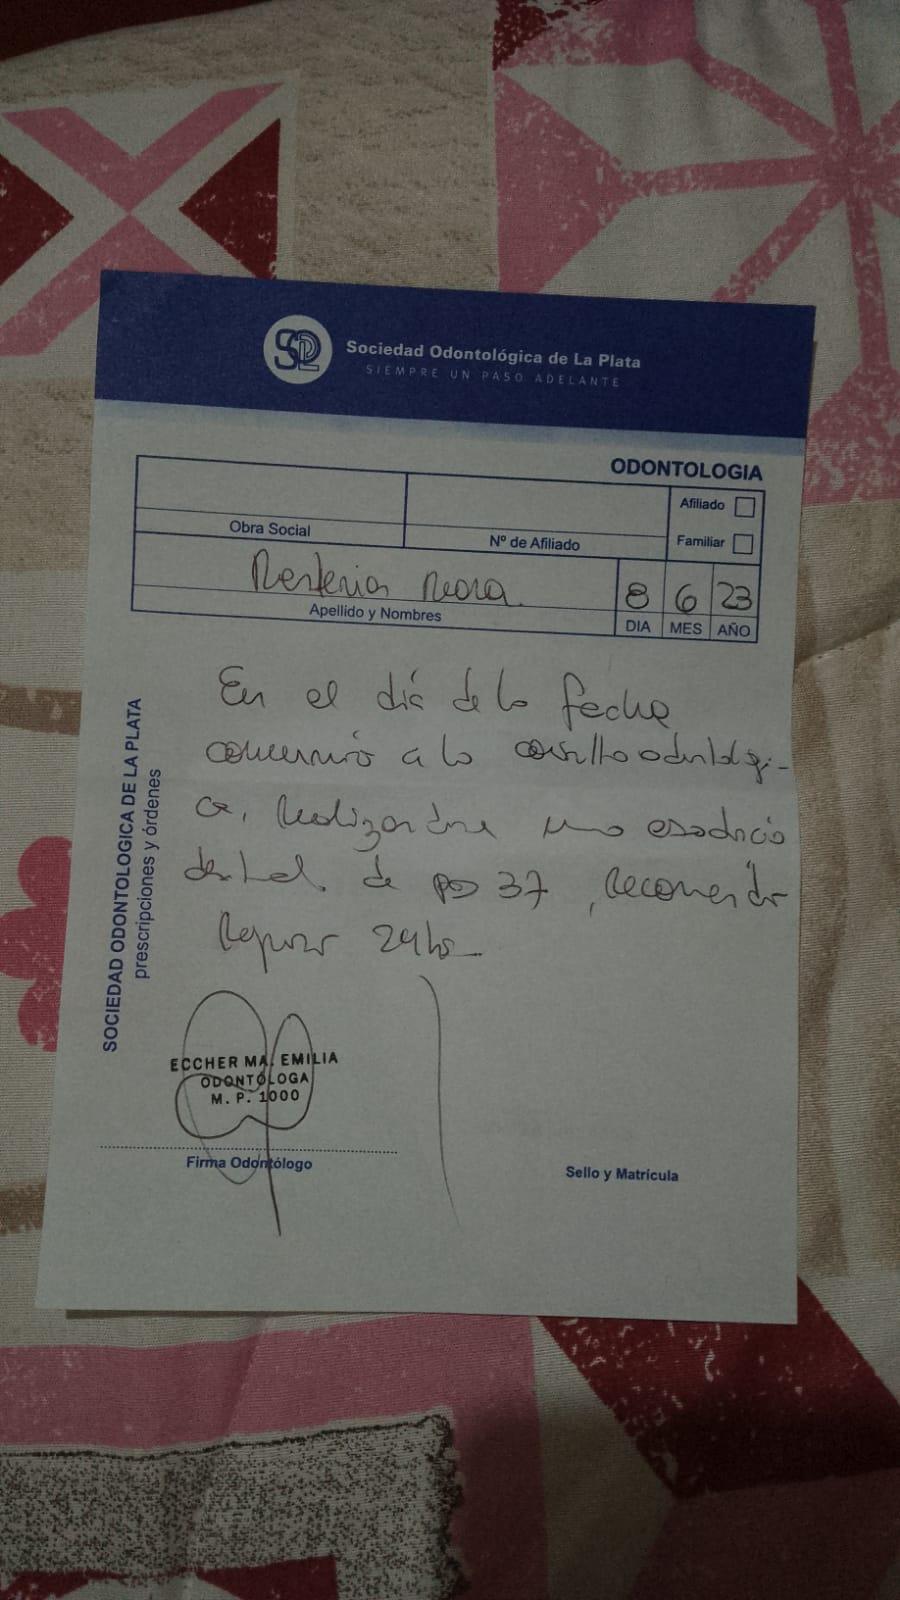 SDL
Sociedad Odontológica de La Plata
SIEMPRE UN PASO ADELANTE
ODONTOLOGIA
Afiliado
Obra Social
Nº de Afiliado
Familiar
8 6 23
Apellido y Nombres
DIA MES AÑO
SOCIEDAD ODONTOLOGICA DE LA PLATA
prescripciones y órdenes
En el día de la fecha
concurrió a la consulta odontológi-
ca, realizandose una exodoncia
dental de pd 37, recomendo
reposo 24hs
ECCHER MA. EMILIA
ODONTÓLOGA
M. P. 1000
Firma Odontólogo
Sello y Matrícula